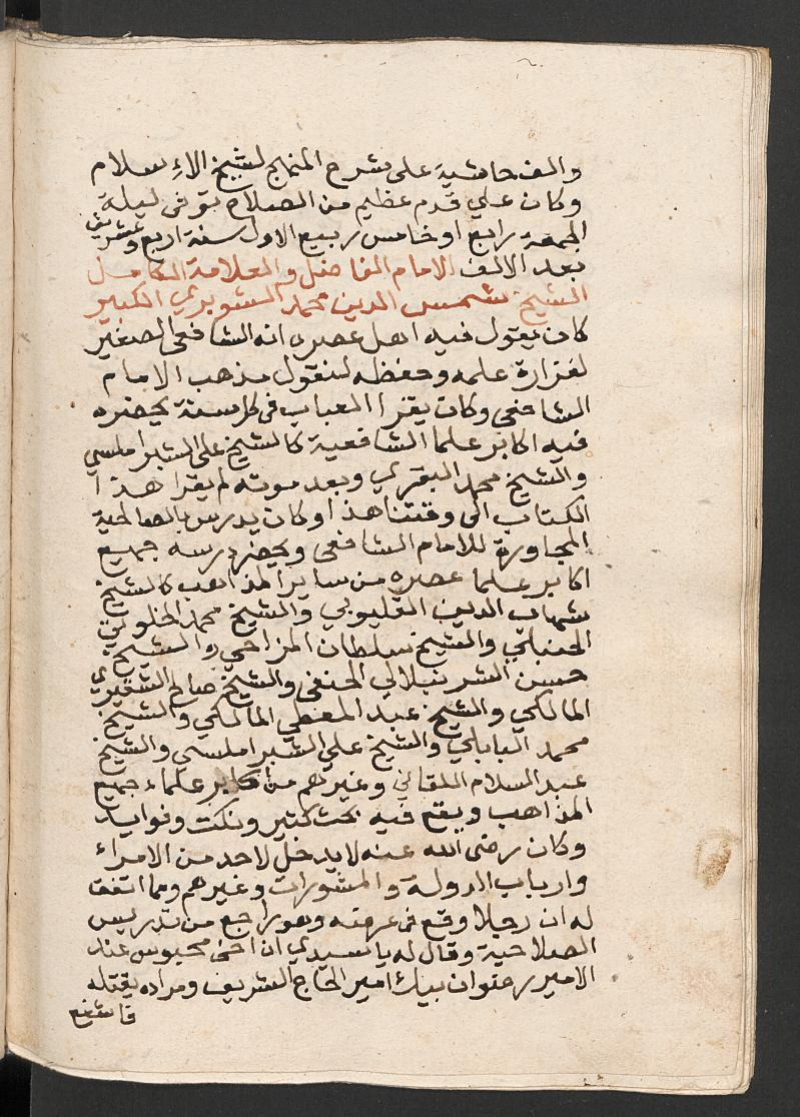 والف حاشية على شرح المنهج لشيخ الاءسلام
وكان علي قدم عظيم من الصلاح توفى ليلة
الجمعة رابع او خامس ربيع الاول سنة اربع وعشرين
بعد الالف الامام الفاضل والعلامة الكامل
الشيخ شمس الدين محمد الشوبري الكبير
كان يقول فيه اهل عصره انه الشافعى الصغير
لغزارة علمه وحفظه لنقول مذهب الامام
الشافعي وكان يقرا العباب فى كل سنة يحضره
فيه اكابر علما الشافعية كالشيخ على الشبراملسي
والشيخ محمد البقري وبعد موته لم يقرا هذا
الكتاب الى وقتنا هذا وكان يدرس بالصالحية
المجاورة للامام الشافعى ويحضر درسه جميع
اكابر علما عصره من ساير المذاهب كالشيخ
شهاب الدين القليوبي والشيخ محمد الخلوتي
الحنبلي والشيخ سلطان المزاحي والشيخ
حسن الشرنبلالي الحنفى والشيخ صالح
المالكي والشيخ عبد المعطي المالكي والشيخ
محمد البابلي والشيخ علي الشبراملسي والشيخ
عبد السلام اللقاني وغيرهم من اكابر علماء جميع
المذاهب ويقع فيه بحث كثير ونكت وفوايد
وكان رضى الله عنه لا يدخل لاحد من الامراء
وارباب الدولة والمشورات وغيرهم ومما اتفق
له ان رجلا وقع فى عرضه وهو راجع من تدريس
الصلاحية وقال له يا سيدي ان اخى محبوس عند
الامير رضوان بيك امير الحاج الشريف ومراده يقتله
فاشفع